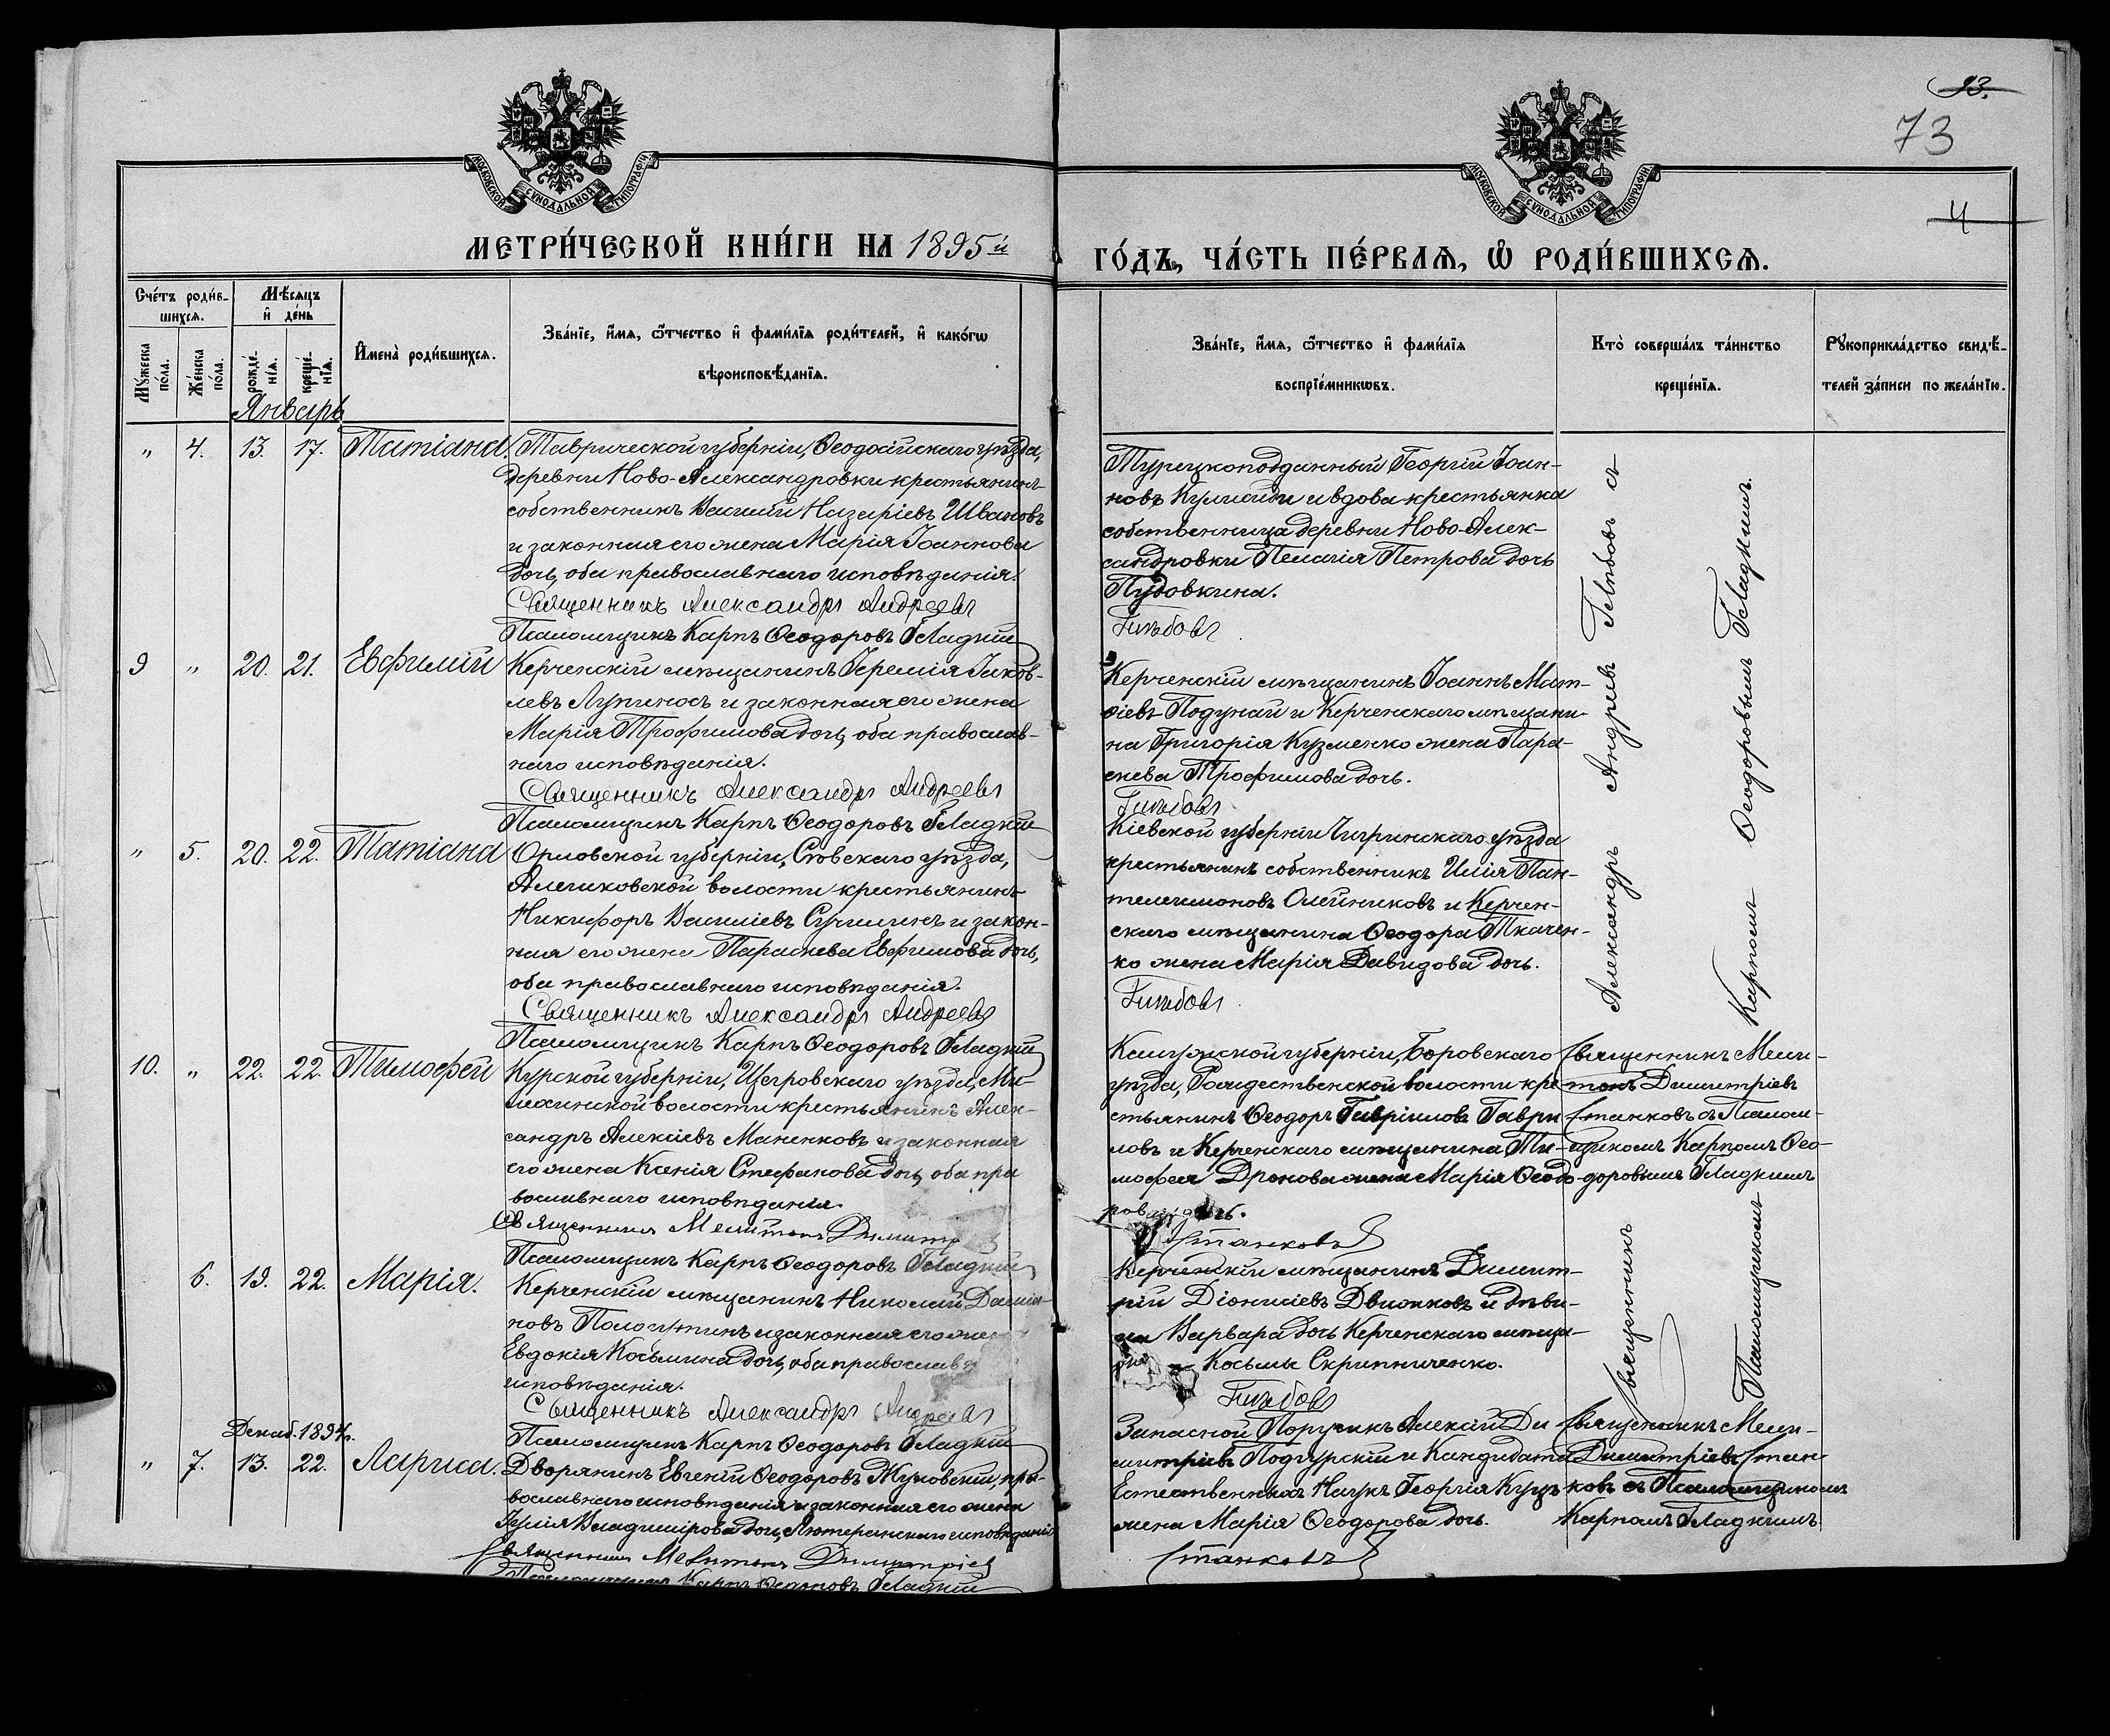 93.
73
4
МОСКОВСКОЙ СУНОДАЛЬНОЙ ТИПОГРАФІИ
МОСКОВСКОЙ СУНОДАЛЬНОЙ ТИПОГРАФІИ
МЕТРИ́ЧЕСКОЙ КНИ́ГИ НА 1895й
ГО́ДЪ, ЧА́СТЬ ПЕ́РВАѦ, Ѿ РОДИ́ВШИХСѦ.
Сче́тъ роди́в-
шихсѧ.
Мѣ́сѧцъ
и҆ де́нь
Мꙋ́жеска по́ла.
Же́нска по́ла.
рожде́-
нїѧ.
креще́-
нїѧ.
И҆мена̀ роди́вшихсѧ.
Зва́нїе, и҆́мѧ, ѻ҆́тчество и҆ фами́лїѧ роди́телей, и҆ како́гѡ
вѣроисповѣ́данїѧ.
Зва́нїе, и҆́мѧ, ѻ҆́тчество и҆ фами́лїѧ
воспрїе́мникѡвъ.
Кто̀ соверша́лъ та́инство
креще́нїѧ.
Рꙋкоприкла́дство свидѣ́-
телей за́писи по жела́нїю.
Январь
„ 4. 13. 17. Татіана.
Таврической губерніи, Ѳеодосійскаго уѣзда,
деревни Ново-Александровки крестьянинъ
собственникъ Василій Назаріевъ Швановъ
и законная его жена Марія Іоаннова
дочь, оба православнаго исповѣданія.
Священникъ Александръ Андреевъ
Псаломщикъ Карпъ Ѳеодоровъ Гладкій
Турецкоподданный Георгій Іоан-
новъ и вдова крестьянка
собственница деревни Ново-Алек-
сандровки Пелагія Петрова дочь
Пудовкина.
Глѣбовъ
9 „ 20. 21. Евфимій
Керченскій мѣщанинъ Іеремія Іаков-
левъ Лупиносъ и законная его жена
Марія Трофимова дочь, оба православ-
наго исповѣданія.
Священникъ Александръ Андреевъ
Псаломщикъ Карпъ Ѳеодоровъ Гладкій
Керченскій мѣщанинъ Іоаннъ Мат-
ѳіевъ Подунай и Керченскаго мѣщани-
на Григорія Кузменко жена Пара-
скева Трофимова дочь.
Глѣбовъ
„ 5. 20. 22. Татіана
Орловской губерніи, Сѣвскаго уѣзда,
волости крестьянинъ
Никифоръ Василіевъ Сучилинъ и закон-
ная его жена Параскева Евфимова дочь,
оба православнаго исповѣданія.
Священникъ Александръ Андреевъ
Псаломщикъ Карпъ Ѳеодоровъ Гладкій
Кіевской губерніи Чигринскаго уѣзда
крестьянинъ собственникъ Илія Пан-
телеимоновъ Олейниковъ и Керчен-
скаго мѣщанина Ѳеодора Ткачен-
ко жена Марія Давидова дочь.
Глѣбовъ
Священникъ Александръ Андреевъ Глѣбовъ съ
Псаломщикомъ Карпомъ Ѳеодоровымъ Гладкимъ.
10. „ 22. 22. Тимоѳей
Курской губерніи, Щегровскаго уѣзда, Ми-
лехинской волости крестьянинъ Алек-
сандръ Алексіевъ Маненковъ и законная
его жена Ксенія Стефанова дочь, оба пра
вославнаго исповѣданія.
Священникъ Мелитонъ Димитр
Псаломщикъ Карпъ Ѳеодоровъ Гладкій
Калужской губерніи, Боровскаго
уѣзда, Рождественской волости кре
стьянинъ Ѳеодоръ Гавріиловъ Гаври
ловъ и Керченскаго мѣщанина Ти-
моѳея Дронова жена Марія Ѳеодо-
рова дочь.
Станковъ
Священникъ Мели-
тонъ Димитріевъ
Станковъ съ Псалом-
щикомъ Карпомъ Ѳео-
доровымъ Гладкимъ
6. 19. 22. Марія.
Керченскій мѣщанинъ Николай Даміа-
новъ и законная его жен
Евдокія Космина дочь, оба православн
исповѣданія.
Священникъ Александръ Андреевъ
Псаломщикъ Карпъ Ѳеодоровъ Гладкій
Керченскій мѣщанинъ Димит-
рій Діонисіевъ Движковъ и дѣви-
ца Варвара дочь Керченскаго мѣща-
Косьмы Скрипниченко.
Глѣбовъ
Декаб. 1894г.
„ 7. 13. 22. Лариса.
Дворянинъ Евгеній Ѳеодоровъ Жуковскій, пра-
вославнаго исповѣданія и законная его жена
Юлія Владимірова дочь, Лютеранскаго исповѣданія
Священникъ Мелитонъ Димитріевъ
Псаломщикъ Карпъ Ѳеодоровъ Гладкій
Запасной Поручикъ Алексій Ди
митріевъ Подгурскій и Кандидата
Естественныхъ Наукъ Георгія
жена Марія Ѳеодорова дочь.
Станковъ
Священникъ Мели-
Димитріевъ Стан-
ковъ съ Псаломщикомъ
Карпомъ Гладкимъ